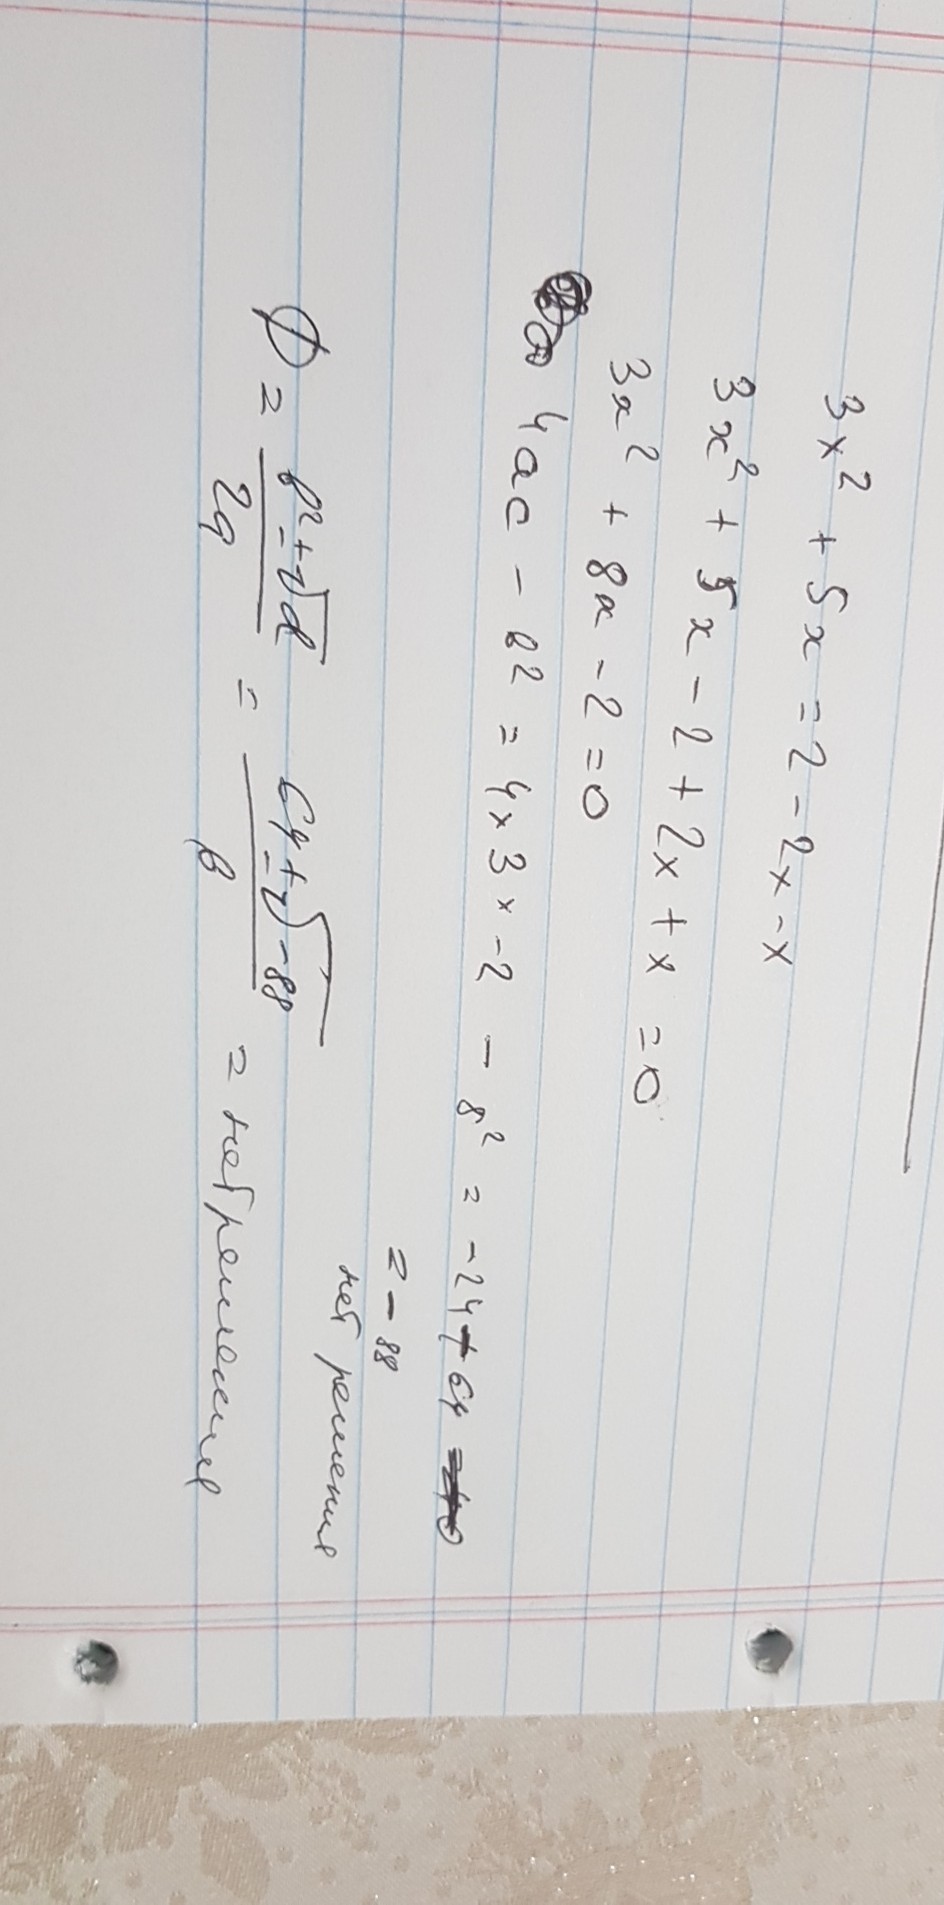 3x² + 5x = 2 - 2x - x
3x² + 5x - 2 + 2x + x = 0
3x² + 8x - 2 = 0
4ac - b² = 4 × 3 × -2 - 8² = -24 + 64
= -88
нет решения
= b² ± √d / 2a = 64 ± √-88 / 6 = нет решения